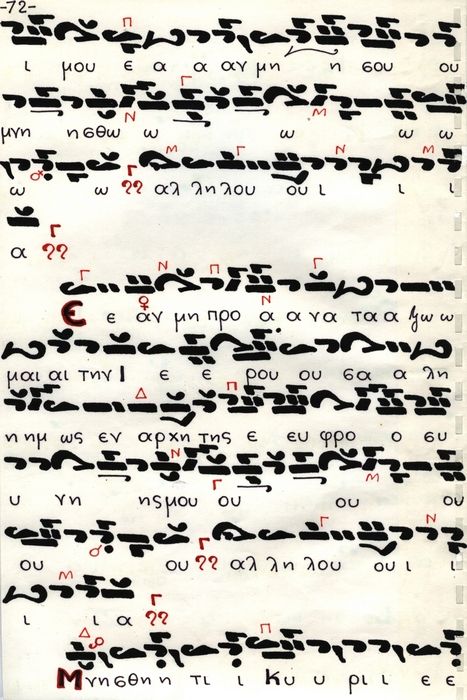 -72-
ι μου ε α α αν μη η σου ου
μνη η σθω ω ω ω ω
ω ω αλ λη λου ου ι ι ι
α
Ε ε αν μη προ α α να τα α ξω ω
μαι αι την Ι ε ε ρου ου σα α λη
η ημ ως εν αρχη της ε ευ φρο ο συ
υ νη ης μου ου ου ου
ου ου αλ λη λου ου ι ι
ι ι α
Μνησθη η τι ι Κυ υ ρι ι ε ε